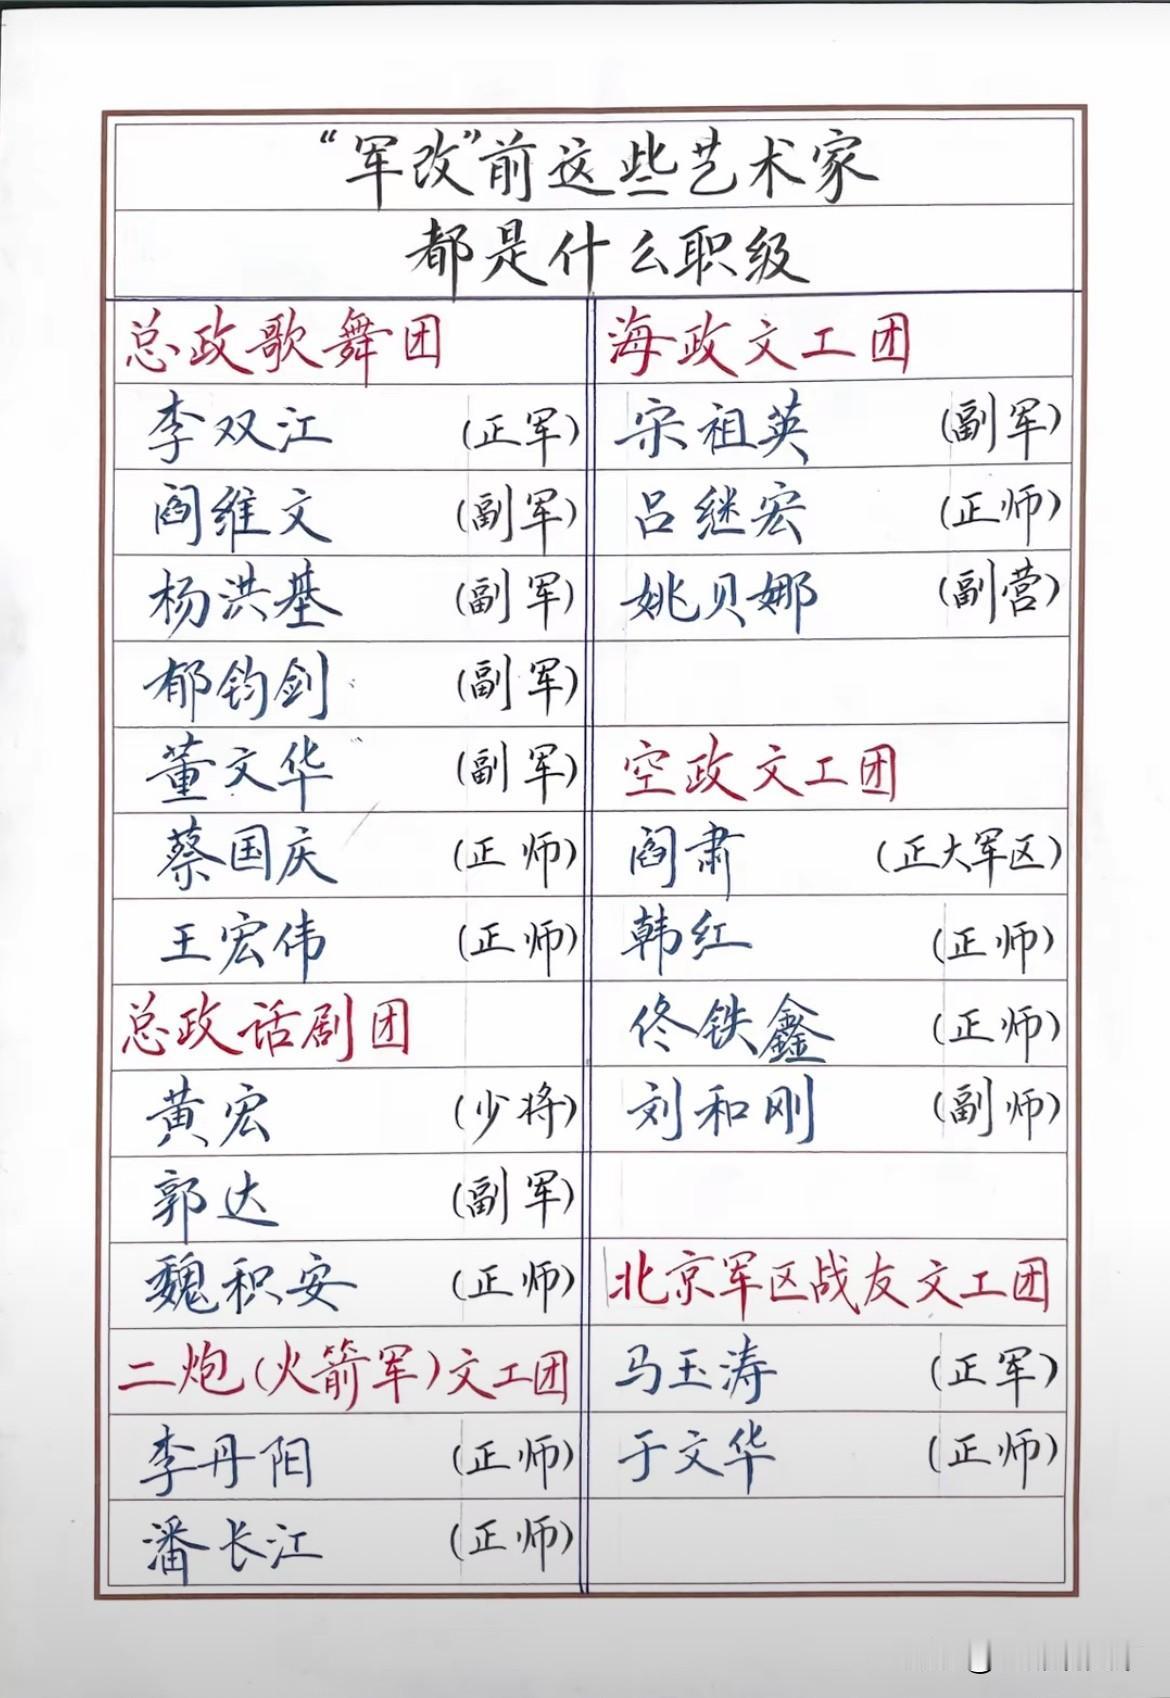 “军改”前这些艺术家
都是什么职级
总政歌舞团
李双江 (正军)
阎维文 (副军)
杨洪基 (副军)
郁钧剑 (副军)
董文华 (副军)
蔡国庆 (正师)
王宏伟 (正师)
总政话剧团
黄宏 (少将)
郭达 (副军)
魏积安 (正师)
二炮(火箭军)文工团
李丹阳 (正师)
潘长江 (正师)
海政文工团
宋祖英 (副军)
吕继宏 (正师)
姚贝娜 (副营)
空政文工团
阎肃 (正大军区)
韩红 (正师)
佟铁鑫 (正师)
刘和刚 (副师)
北京军区战友文工团
马玉涛 (正军)
于文华 (正师)